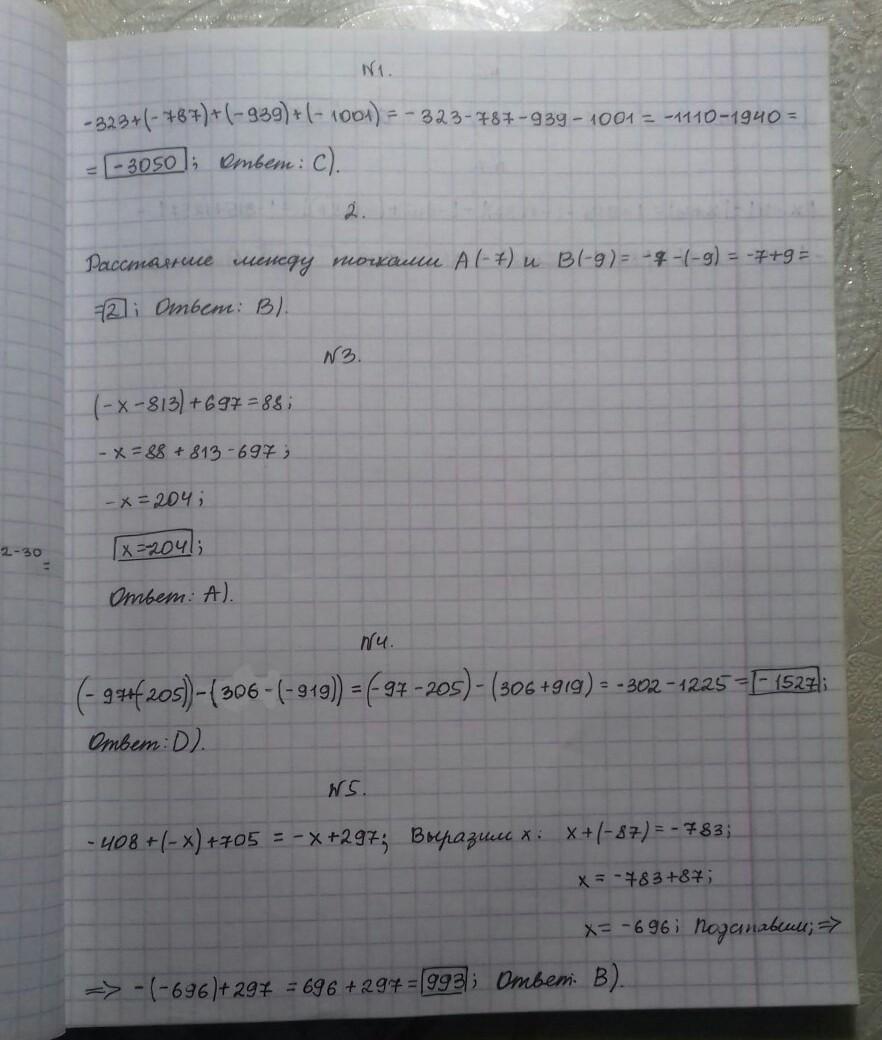 N1.
-323+(-787)+(-939)+(-1001)=-323-787-939-1001=-1110-1940=
=-3050; Ответ: C).
2.
Расстаяние между точками A(-7) и B(-9)= -7-(-9)= -7+9=
=2; Ответ: B).
N3.
(-x-813)+697=88;
-x=88+813-697;
-x=204;
x=-204;
2-30
=
Ответ: A).
N4.
(-97+(-205))-(306-(-919))=(-97-205)-(306+919)=-302-1225=-1527;
Ответ: D).
N5.
-408+(-x)+705=-x+297; Выразим x: x+(-87)=-783;
x=-783+87;
x=-696; Подставим; =>
=> -(-696)+297=696+297=993; Ответ: B).